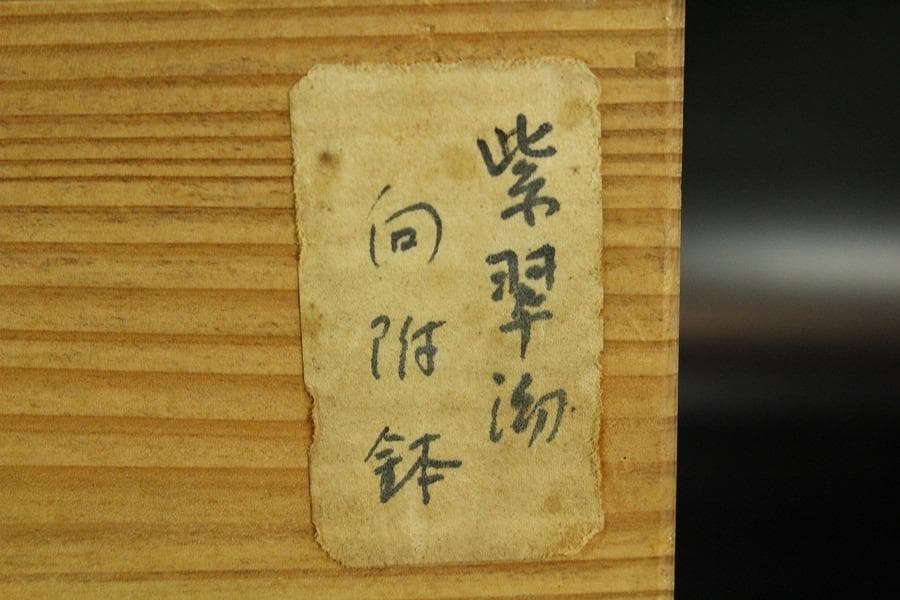 紫翠泑
向附鉢